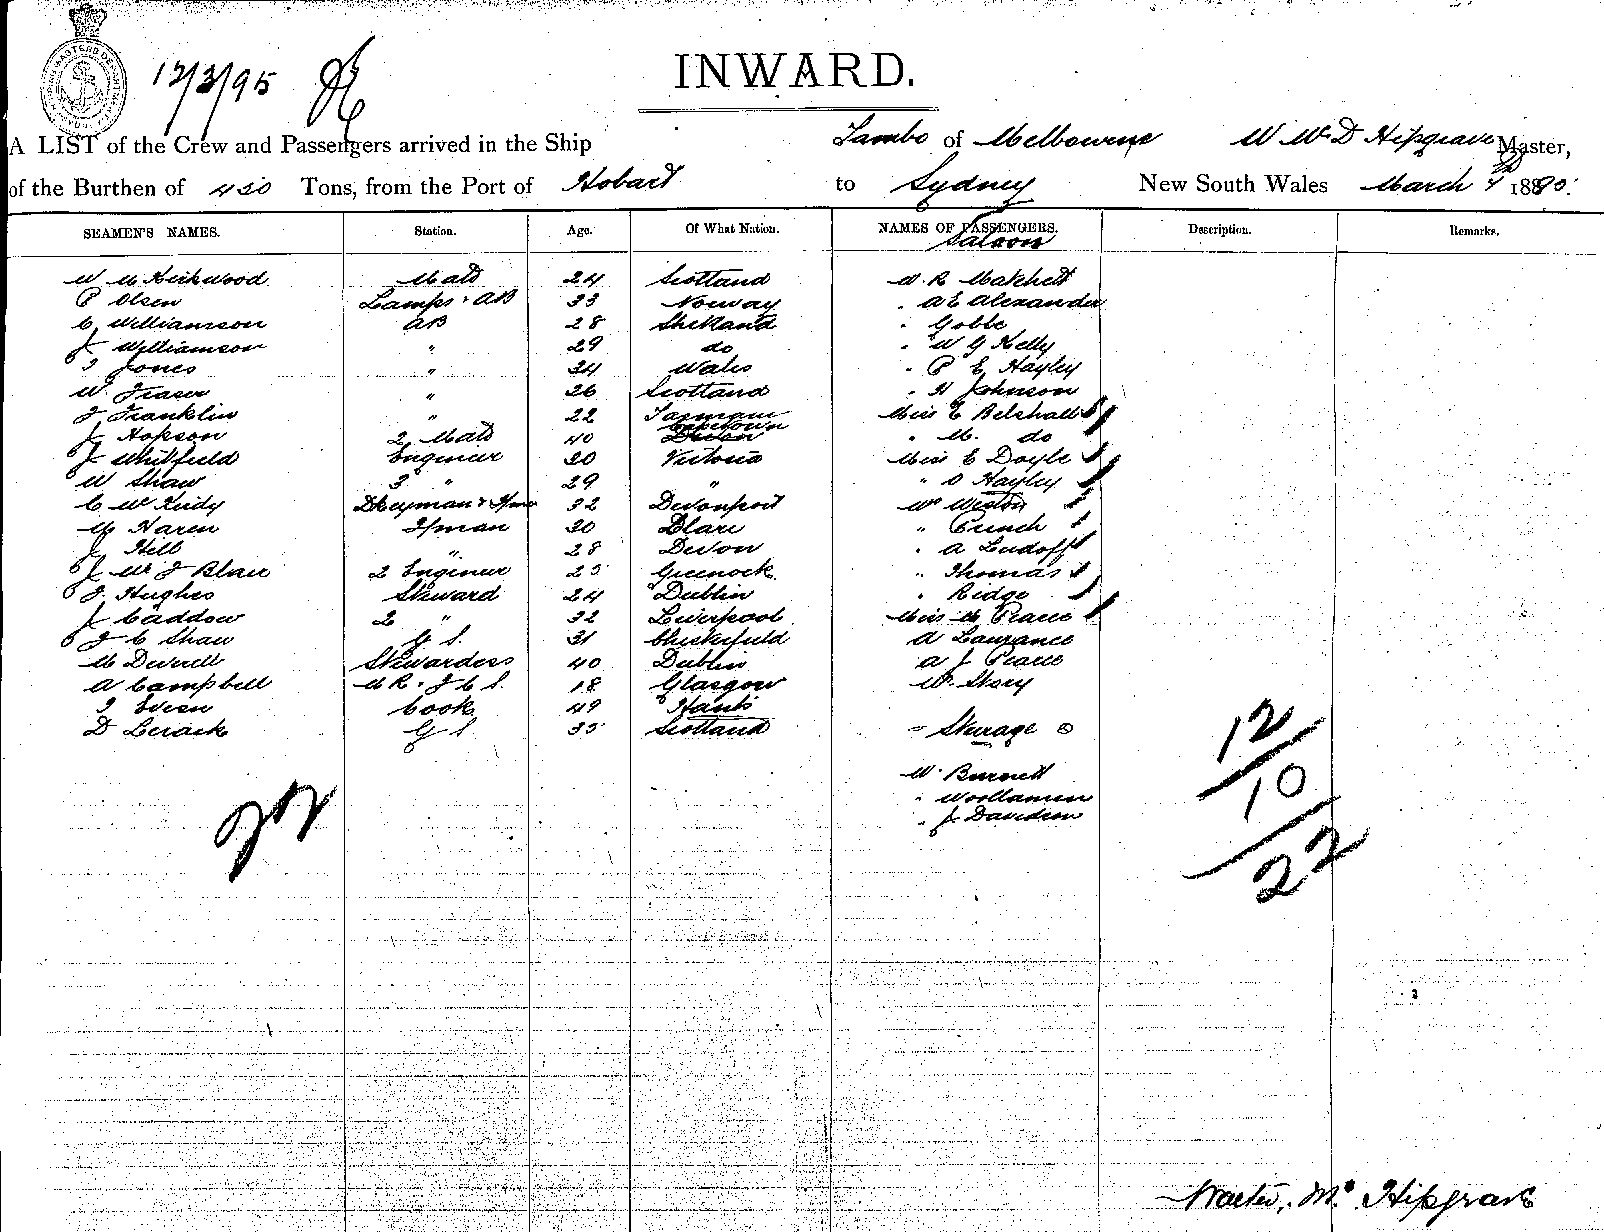 12/3/95
INWARD.
A LIST of the Crew and Passengers arrived in the Ship Tambo of Melbourne W McD Hipgrave Master,
of the Burthen of 450 Tons, from the Port of Hobart to Sydney New South Wales March 1880.
SEAMEN'S NAMES. Station. Age. Of What Nation. NAMES OF PASSENGERS. Description. Remarks.
Saloon
W M Kirkwood Mate 24 Scotland W. R. Matchett
P Olsen Lamps & AB 33 Norway " A E Alexander
C Williamson AB 28 Shetland " Gobbe
J Williamson " 29 do " W G Kelly
T Jones " 24 Wales " P E Hayley
W. Fraser " 26 Scotland " H Johnson
J Franklin " 22 Miss E Belshall
J Hopson 2 Mate 40 Capetown " M. do
J Whitfield Engineer 30 Victoria Miss E Doyle
W Shaw 3 " 29 " " O Hayley
C W 32 Devonport Mr Weston
M Haren Fman 30 Clare " Crinch
J Hill " 28 Devon " A Ludoff
J Mc J Blair 2 Engineer 25 Greenock " Thomas
J. Hughes Steward 24 Dublin " Ridge
J Caddow 2 " 32 Liverpool Miss M Pearce
J C Shaw G S. 31 Chesterfield A Laurance
M Deverell Stewardess 40 Dublin A J Pearce
A Campbell 18 Glasgow W. Story
T Cook 49 Hants
D G S 35 Scotland " Steerage
W. Burnett
" Woollamen
" J Davidson
12
10
22
Walter Mc Hipgrave